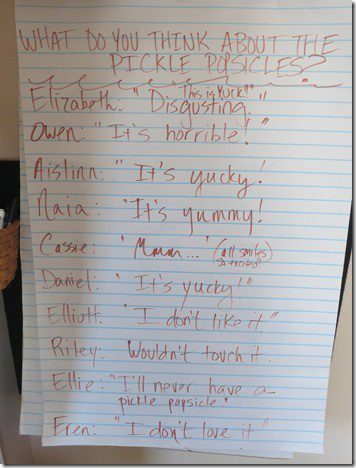 WHAT DO YOU THINK ABOUT THE
PICKLE POPSICLES?
This is YUCK!"
Elizabeth: "Disgusting."
Owen: "It's horrible!"
Aislinn: "It's yucky!
Naia: "It's yummy!
Cassie: "Mmm..." (all smiles)
so excited!
Daniel: "It's yucky!"
Elliott: "I don't like it."
Riley: Wouldn't touch it.
Ellie: "I'll never have a
pickle popsicle."
Eren: "I don't love it."